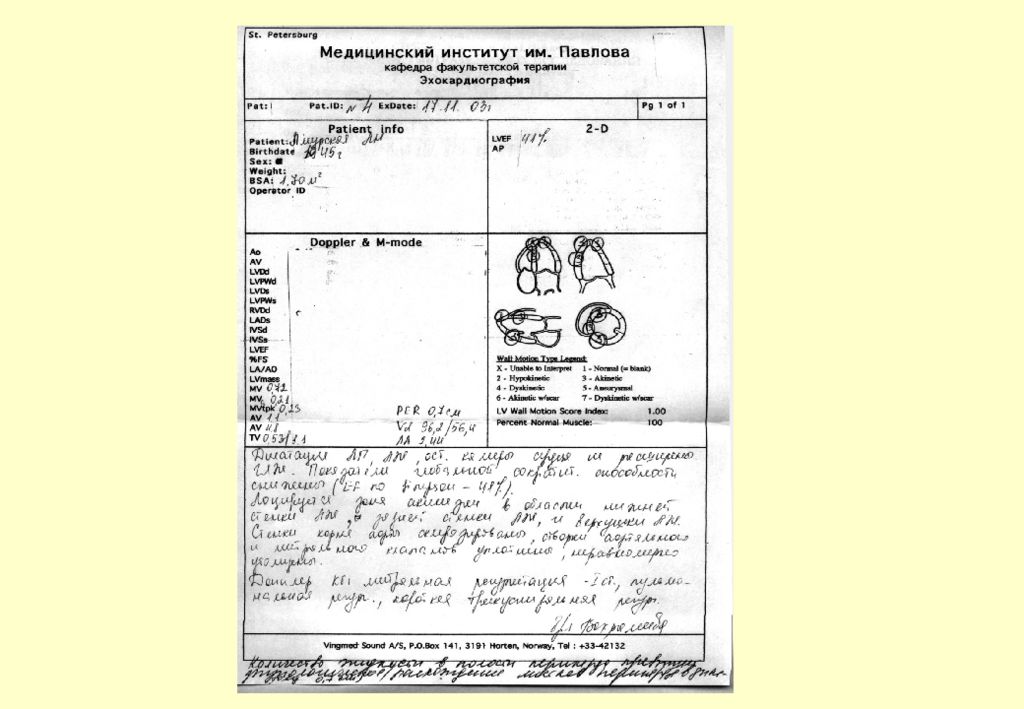 St. Petersburg
Медицинский институт им. Павлова
кафедра факультетской терапии
Эхокардиография
Pat: Pat.ID: N 4 ExDate: 17.11.03г Pg 1 of 1
Patient info
Patient:
Birthdate 1945г
Sex:
Weight:
BSA: 1,70 м²
Operator ID
2-D
LVEF 48%
AP
Doppler & M-mode
Ao
AV
LVDd
LVPWd
LVDs
LVPWs
RVDd
LADs
IVSd
IVSs
LVEF
%FS
LA/AD
LVmass
MV 0,72
MV 0,21
MVtpk 0,23
AV 1.1
AV 4.8
TV 0,53/1.1
PER 0,7см
Vd 96,2/56,4
ЛА 2,44
Wall Motion Type Legend:
X - Unable to Interpret 1 - Normal (= blank)
2 - Hypokinetic 3 - Akinetic
4 - Dyskinetic 5 - Aneurysmal
6 - Akinetic w/scar 7 - Dyskinetic w/scar
LV Wall Motion Score Index: 1.00
Percent Normal Muscle: 100
Дилатация ЛП, ЛЖ, ост. камеры сердца не расширены.
ГЛЖ. Показатели глобальной сократит. способности
снижены (EF по Simpson - 48%).
Лоцируется зона акинезии в области нижней
стенки ЛЖ, задней стенки ЛЖ, и верхушки ЛЖ.
Стенки корня аорты склерозированы, створки аортального
и митрального клапанов уплотнены, неравномерно
утолщены.
Допплер КГ: митральная регургитация - I ст., пульмо-
нальная регург., короткая трикуспидальная регург.
Vingmed Sound A/S, P.O.Box 141, 3191 Horten, Norway, Tel : +33-42132
Количество жидкости в полости перикарда превышает
физиологическое расхождение листков перикарда